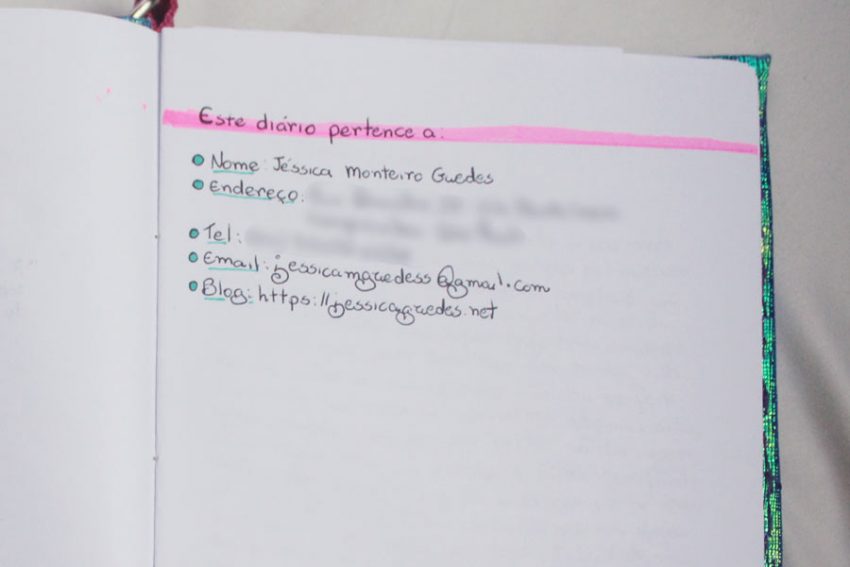 Este diário pertence a:
Nome: Jéssica Monteiro Guedes
Endereço:
Tel:
Email: jessicamguedess@gmail.com
Blog: https://jessicaguedes.net